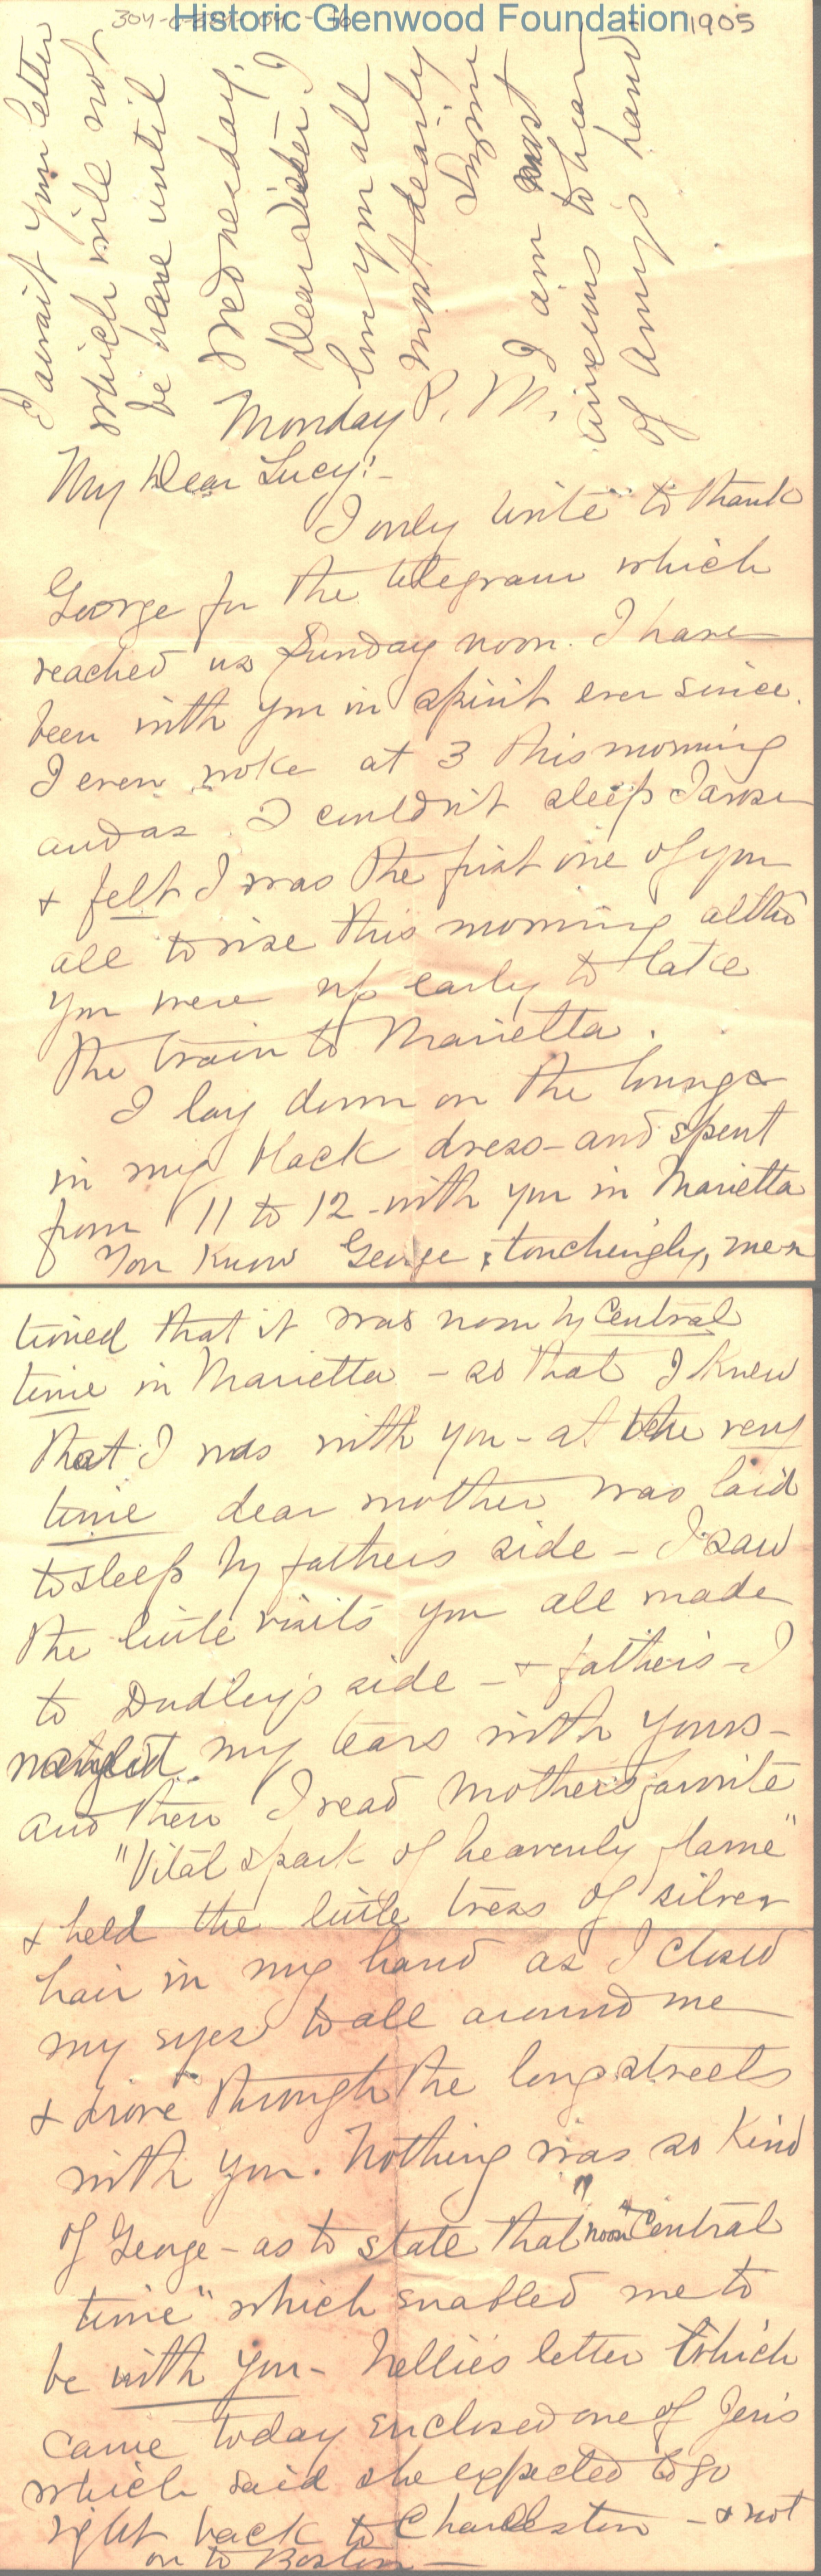 Historic Glenwood Foundation
1905
I await your letter
which will not
be here until
Wednesday.
Dear Sister I
love you all
most dearly
I am most
anxious to hear
of Amy's hand
Monday P. M.
My Dear Lucy:-
I only write to thank
George for the telegram which
reached us Sunday noon. I have
been with you in spirit ever since.
I even woke at 3 this morning
and as I couldn't sleep I arose
& felt I was the first one of you
all to rise this morning altho'
you were up early to take
the train to Marietta.
I lay down on the lounge
in my black dress - and spent
from 11 to 12 - with you in Marietta
You know George, touchingly, men
tioned that it was noon by Central
time in Marietta - so that I knew
that I was with you - at the very
time dear mother was laid
to sleep by father's side - I saw
the little visits you all made
to Dudley's side - & father's - I
my tears with yours -
and then I read mother's favorite
"Vital spark of heavenly flame"
& held the little tress of silver
hair in my hand as I closed
my eyes to all around me
& drove through the long streets
with you. Nothing was so kind
of George - as to state that "noon Central
time" which enabled me to
be with you - Nellie's letter which
came today enclosed one of Jen's
which said she expected to go
right back to Charleston - & not
on to Boston -